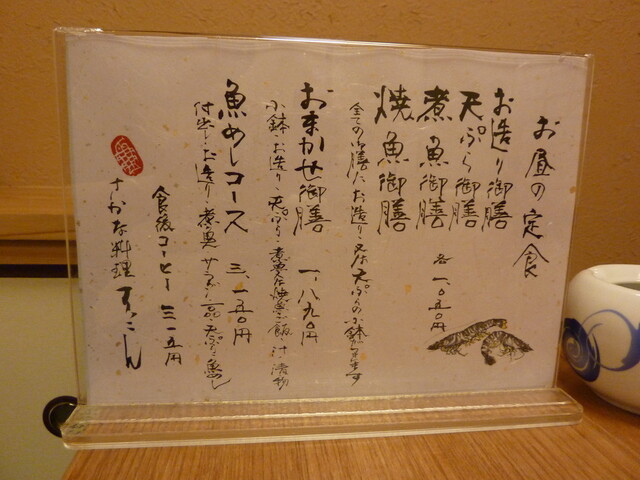 お昼の定食
お造り御膳
天ぷら御膳
煮魚御膳
焼魚御膳
各 一、〇五〇円
全ての御膳に、お造り又は天ぷらの小鉢が付きます
おまかせ御膳 一、八九〇円
小鉢・お造り・天ぷら・煮魚又は焼魚・ご飯・汁・漬物
魚めしコース 三、一五〇円
付出し・お造り・煮魚 サラダ・一品・天ぷら・魚めし
食後コーヒー 三一五円
さかな料理